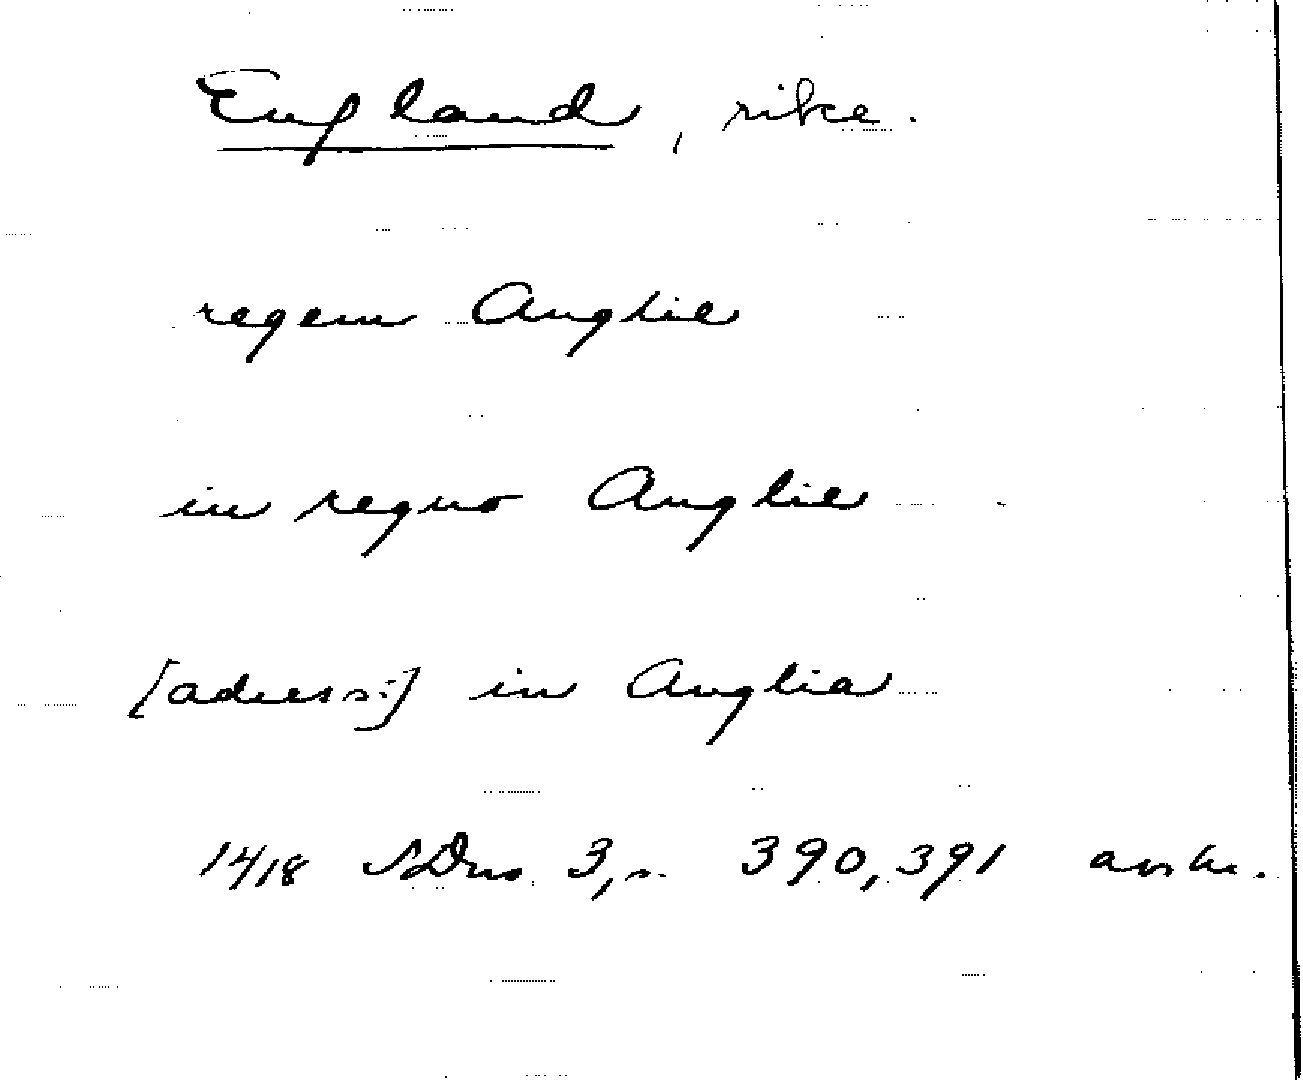 England, rike.
regem Anglie
in regno Anglie
[adress:] in Anglia
1418 SDns 3, s. 390, 391 avskr.